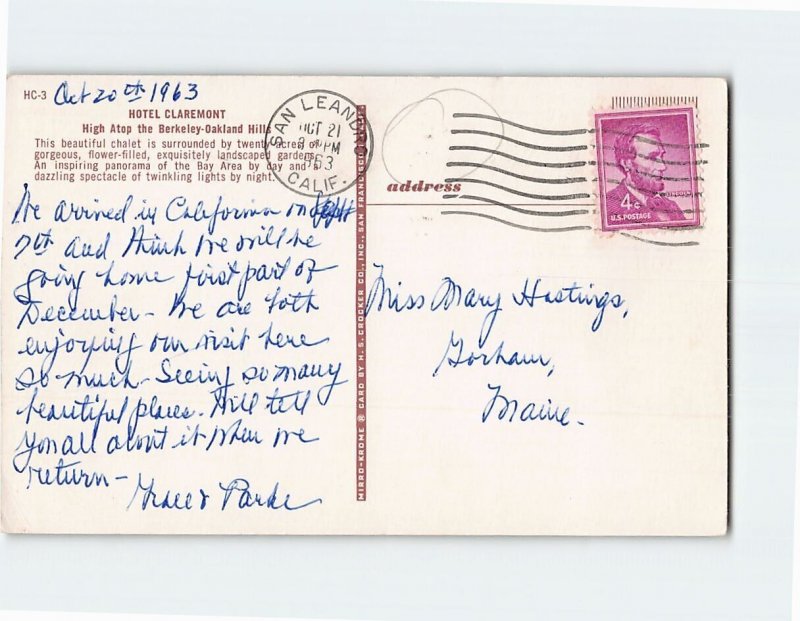 HC-3 Oct 20th 1963
HOTEL CLAREMONT
High Atop the Berkeley-Oakland Hills
This beautiful chalet is surrounded by twenty acres of
gorgeous, flower-filled, exquisitely landscaped gardens.
An inspiring panorama of the Bay Area by day and a
dazzling spectacle of twinkling lights by night.
We arrived in California on Sept
7th and think we will be
going home first part of
December - We are both
enjoying our visit here
so much - Seeing so many
beautiful places. Will tell
you all about it when we
return -
Grace & Parke
SAN LEANDRO
OCT 21
PM
1963
CALIF.
MIRRO-KROME ® CARD BY H. S. CROCKER CO., INC., SAN FRANCISCO
address
4¢
U.S. POSTAGE
LINCOLN
Miss Mary Hastings,
Gorham,
Maine.